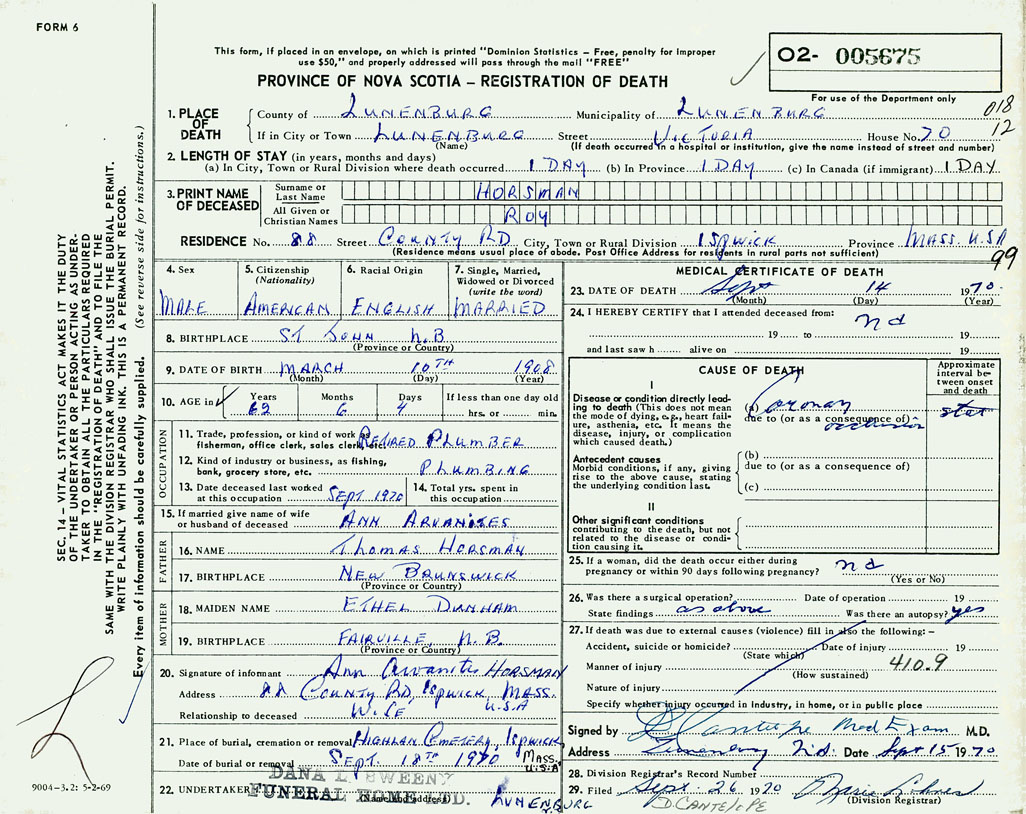 FORM 6
This form, if placed in an envelope, on which is printed "Dominion Statistics – Free, penalty for improper
use $50," and properly addressed will pass through the mail "FREE"
O2- 005675
PROVINCE OF NOVA SCOTIA – REGISTRATION OF DEATH
For use of the Department only
018
12
1. PLACE OF DEATH
County of LUNENBURG Municipality of LUNENBURG
If in City or Town LUNENBURG Street VICTORIA House No. 70
(Name) (If death occurred in a hospital or institution, give the name instead of street and number)
2. LENGTH OF STAY (in years, months and days)
(a) In City, Town or Rural Division where death occurred 1 DAY (b) In Province 1 DAY (c) In Canada (if immigrant) 1 DAY
3. PRINT NAME OF DECEASED
Surname or Last Name HORSMAN
All Given or Christian Names ROY
RESIDENCE No. 88 Street COUNTY RD City, Town or Rural Division ISPWICK Province MASS. U.S.A
(Residence means usual place of abode. Post Office Address for residents in rural parts not sufficient)
99
4. Sex
MALE
5. Citizenship
(Nationality)
AMERICAN
6. Racial Origin
ENGLISH
7. Single, Married,
Widowed or Divorced
(write the word)
MARRIED
8. BIRTHPLACE ST JOHN N.B
(Province or Country)
9. DATE OF BIRTH MARCH 10TH 1908
(Month) (Day) (Year)
10. AGE in
Years Months Days If less than one day old
62 6 4 hrs. or min.
OCCUPATION
11. Trade, profession, or kind of work as
fisherman, office clerk, sales clerk, etc. RETIRED PLUMBER
12. Kind of industry or business, as fishing,
bank, grocery store, etc. PLUMBING
13. Date deceased last worked
at this occupation SEPT. 1970
14. Total yrs. spent in
this occupation
15. If married give name of wife
or husband of deceased ANN ARVANITES
FATHER
16. NAME THOMAS HORSMAN
17. BIRTHPLACE NEW BRUNSWICK
(Province or Country)
MOTHER
18. MAIDEN NAME ETHEL DUNHAM
19. BIRTHPLACE FAIRVILLE N.B.
(Province or Country)
20. Signature of informant Ann Arvanites HORSMAN
Address 88 COUNTY RD, ISPWICK, MASS. U.S.A
Relationship to deceased WIFE
21. Place of burial, cremation or removal HIGHLAN CEMETERY, ISPWICK
MASS. U.S.A
Date of burial or removal SEPT. 18TH 1970
22. UNDERTAKER DANA L. SWEENY
FUNERAL HOME LTD.
(Name and address) LUNENBURG
MEDICAL CERTIFICATE OF DEATH
23. DATE OF DEATH Sept 14 1970
(Month) (Day) (Year)
24. I HEREBY CERTIFY that I attended deceased from: no
19 to 19
and last saw h alive on 19
CAUSE OF DEATH
Approximate
interval be-
tween onset
and death
I
Disease or condition directly lead-
ing to death (This does not mean
the mode of dying, e.g., heart fail-
ure, asthenia, etc. It means the
disease, injury, or complication
which caused death.)
(a) Coronary occlusion
due to (or as a consequence of)
stat
Antecedent causes
Morbid conditions, if any, giving
rise to the above cause, stating
the underlying condition last.
(b)
due to (or as a consequence of)
(c)
II
Other significant conditions
contributing to the death, but not
related to the disease or condi-
tion causing it.
25. If a woman, did the death occur either during
pregnancy or within 90 days following pregnancy? no
(Yes or No)
26. Was there a surgical operation? Date of operation 19
State findings as above Was there an autopsy? yes
27. If death was due to external causes (violence) fill in also the following: –
Accident, suicide or homicide? Date of injury 19
(State which)
Manner of injury 410.9
(How sustained)
Nature of injury
Specify whether injury occurred in industry, in home, or in public place
Signed by D Cantelope Med Exam M.D.
Address Lunenburg N.S. Date Sept 15 1970
28. Division Registrar's Record Number
29. Filed Sept. 26 1970
(Division Registrar)
D. CANTELOPE
SEC. 14 – VITAL STATISTICS ACT MAKES IT THE DUTY
OF THE UNDERTAKER OR PERSON ACTING AS UNDER-
TAKER TO OBTAIN ALL THE PARTICULARS REQUIRED
IN THE "REGISTRATION OF DEATH" AND TO FILE THE
SAME WITH THE DIVISION REGISTRAR WHO SHALL ISSUE THE BURIAL PERMIT.
WRITE PLAINLY WITH UNFADING INK. THIS IS A PERMANENT RECORD.
Every item of information should be carefully supplied. (See reverse side for instructions.)
9004–3.2: 5-2-69